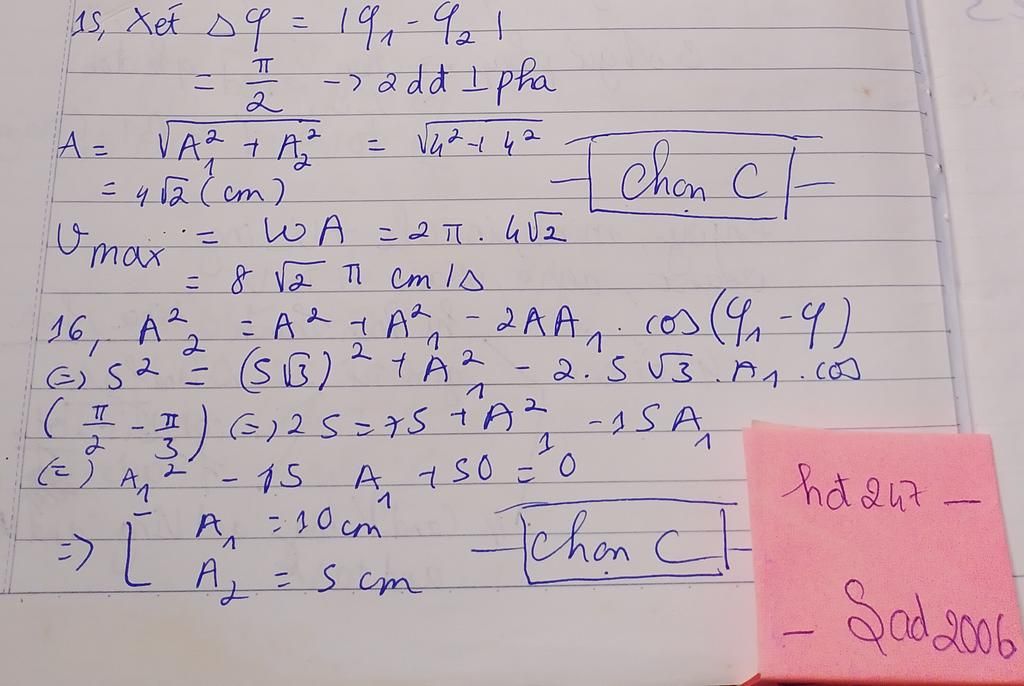 15, Xét Δφ = |φ₁ - φ₂|
= π/2 -> 2 dđ ⊥ pha
A = √(A₁² + A₂²) = √(4² + 4²)
= 4√2 (cm)
Chọn C
v max = ωA = 2π. 4√2
= 8√2 π cm/s
16, A₂² = A² + A₁² - 2AA₁. cos(φ₁ - φ)
(=) 5² = (5√3)² + A₁² - 2.5√3.A₁.cos
(π/2 - π/3) (=) 25 = 75 + A₁² - 15A₁
(=) A₁² - 15 A₁ + 50 = 0
=> [ A₁ = 10 cm
A₂ = 5 cm
Chọn C
hđt247 -
- Sad2006